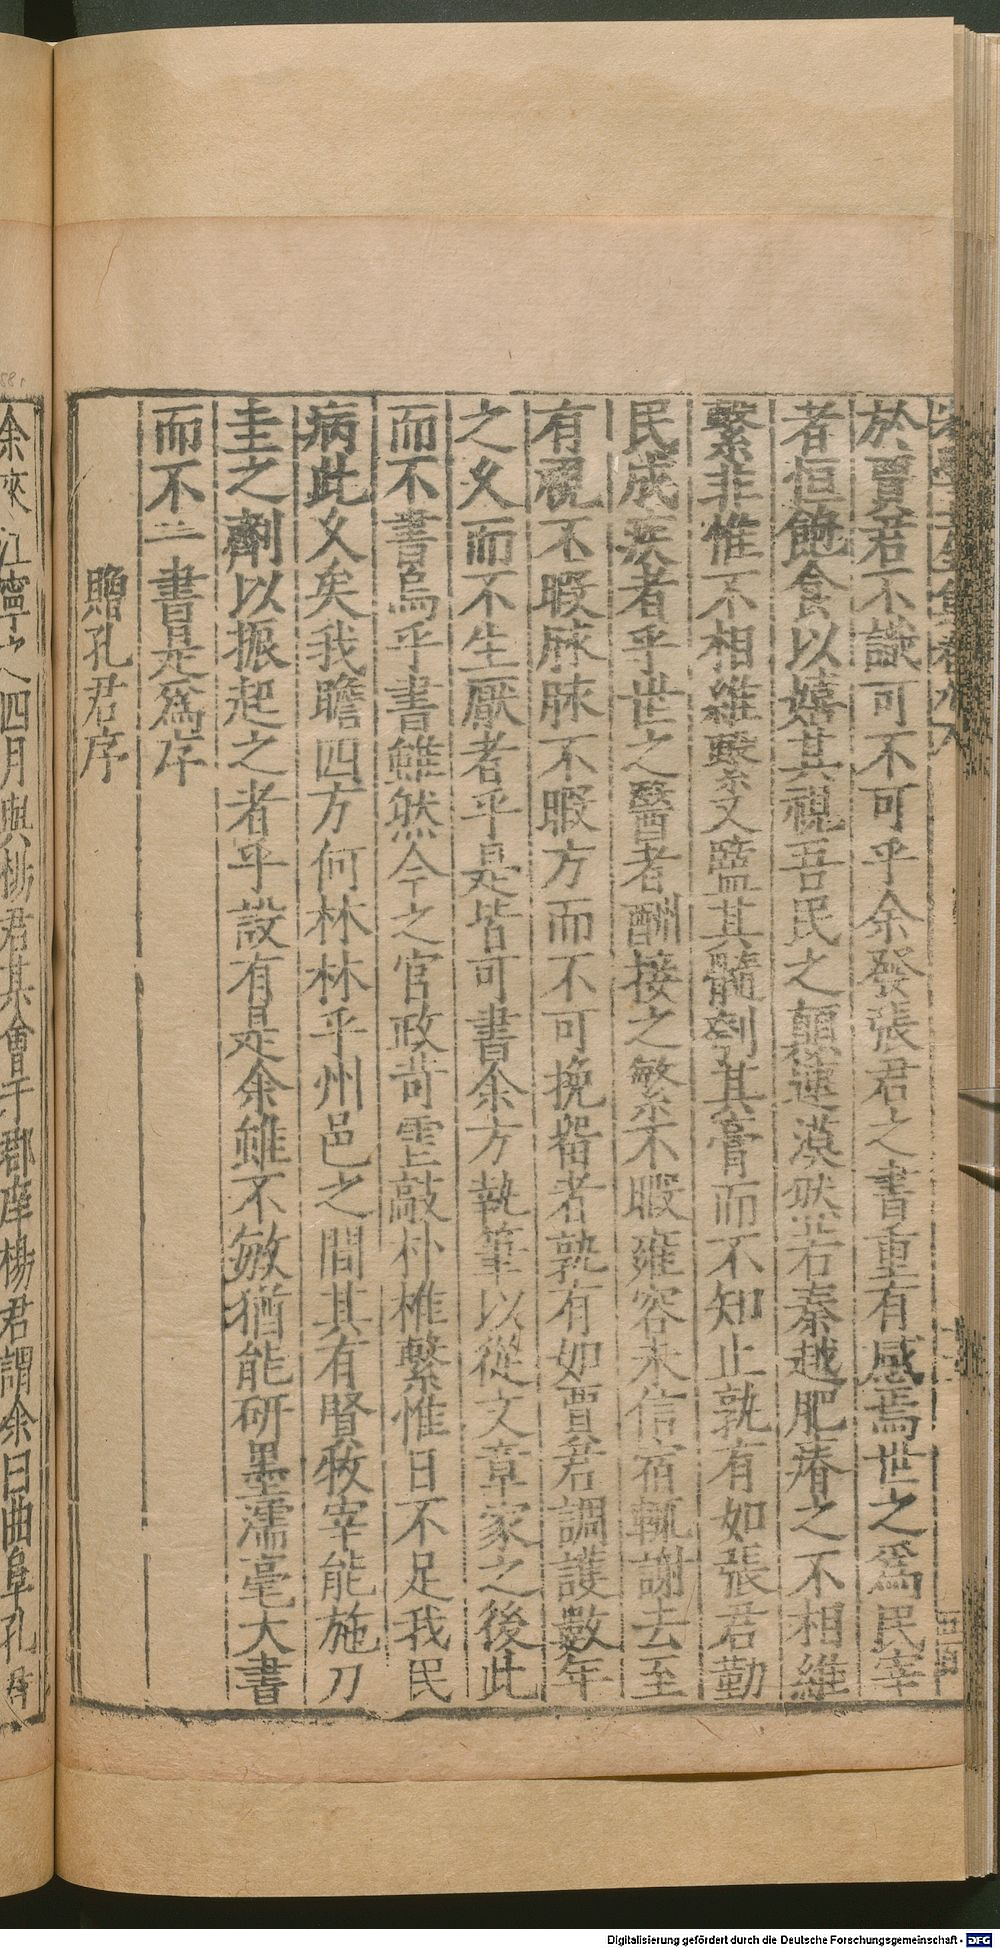 於賈君不識可不可乎余發張君之書重有感焉世之爲民宰
者恒飽食以嬉其視吾民之顛連漠然若秦越肥瘠之不相維
繫非惟不相維繫又盬其髓剜其膏而不知止孰有如張君勤
民成疾者乎世之醫者酬接之繁不暇雍容未信宿輒謝去至
有視不暇脉脉不暇方而不可挽畱者孰有如賈君調護數年
之久而不生厭者乎是皆可書余方執筆以從文章家之後此
而不書烏乎書雖然今之官政苛虐敲朴椎繫惟日不足我民
病此久矣我瞻四方何林林乎州邑之間其有賢牧宰能施刀
圭之劑以振起之者乎設有是余雖不敏猶能研墨濡毫大書
而不一書是爲序
贈孔君序
余來江寧之四月與楊君某會于郡庠楊君謂余曰曲阜孔君
Digitalisierung gefördert durch die Deutsche Forschungsgemeinschaft - DFG